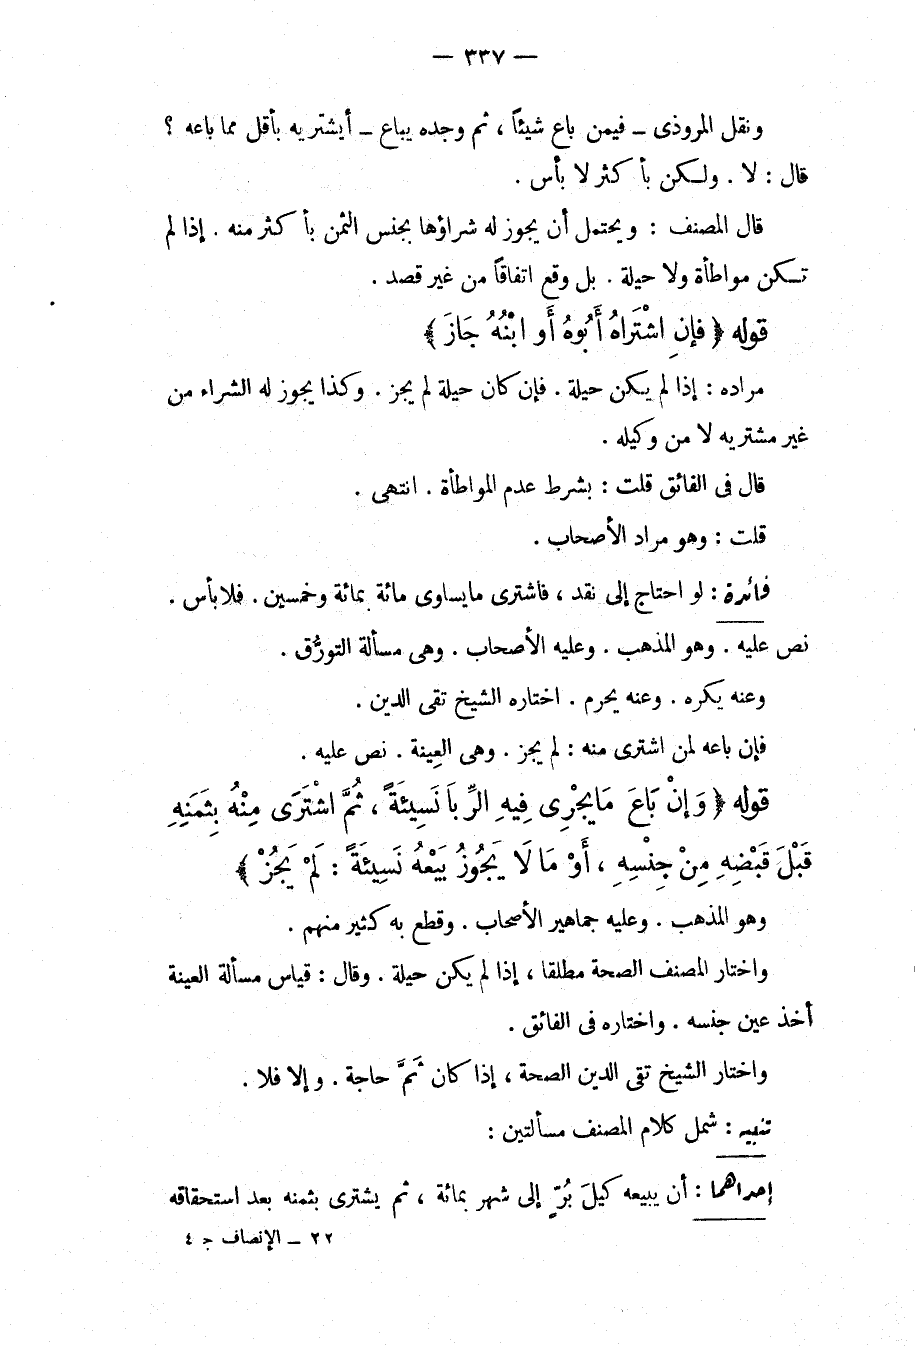 — ٣٣٧ —
ونقل المروذى – فيمن باع شيئاً ، ثم وجده يباع – أيشتريه بأقل مما باعه ؟
قال : لا . ولـكن بأكثر لا بأس .
قال المصنف : ويحتمل أن يجوز له شراؤها بجنس الثمن بأكثر منه . إذا لم
تـكن مواطأة ولا حيلة . بل وقع اتفاقاً من غير قصد .
قوله ﴿ فإنِ اشْتَراهُ أَبُوهُ أَو ابْنُهُ جَازَ ﴾
مراده : إذا لم يكن حيلة . فإن كان حيلة لم يجز . وكذا يجوز له الشراء من
غير مشتريه لا من وكيله .
قال فى الفائق قلت : بشرط عدم المواطأة . انتهى .
قلت : وهو مراد الأصحاب .
فائدة : لو احتاج إلى نقد ، فاشترى مايساوى مائة بمائة وخمسين . فلابأس .
نص عليه . وهو المذهب . وعليه الأصحاب . وهى مسألة التورُّق .
وعنه يكره . وعنه يحرم . اختاره الشيخ تقى الدين .
فإن باعه لمن اشترى منه : لم يجز . وهى العِينة . نص عليه .
قوله ﴿ وَإِنْ بَاعَ مَايجْرِى فِيهِ الرِّبَا نَسِيئَةً ، ثُمَّ اشْتَرَى مِنْهُ بِثَمَنِهِ
قَبْلَ قَبْضِهِ مِنْ جِنْسِهِ ، أَوْ مَا لَا يَجُوزُ بَيْعُهُ نَسِيئَةً : لَمْ يَجُزْ ﴾
وهو المذهب . وعليه جماهير الأصحاب . وقطع به كثير منهم .
واختار المصنف الصحة مطلقا ، إذا لم يكن حيلة . وقال : قياس مسألة العينة
أخذ عين جنسه . واختاره فى الفائق .
واختار الشيخ تقى الدين الصحة ، إذا كان ثَمَّ حاجة . وإلا فلا .
تنبيه : شمل كلام المصنف مسألتين :
إحداهما : أن يبيعه كيلَ بُرٍّ إلى شهر بمائة ، ثم يشترى بثمنه بعد استحقاقه
٢٢ – الإنصاف ج ٤